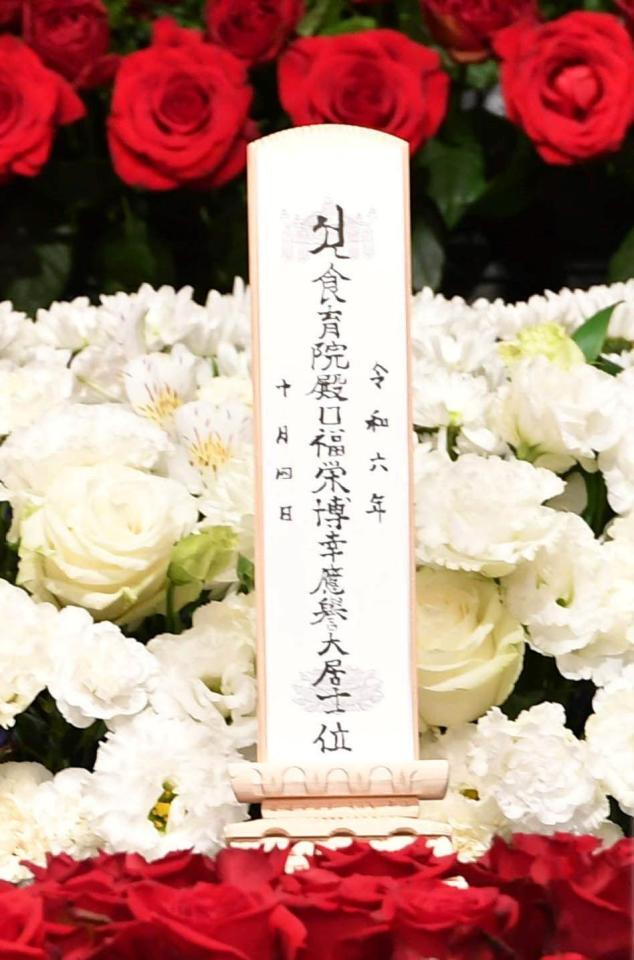 令和六年
食育院殿口福栄博幸應譽大居士位
十月四日